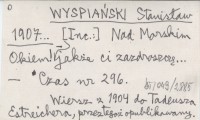 WYSPIAŃSKI Stanisław
1907... [Inc.:] Nad Morskim
Okiem [jakże ci zazdroszczę...
— Czas nr 296.
Wiersz z 1904 do Tadeusza
Estreichera, przez tegoż opublikowany.